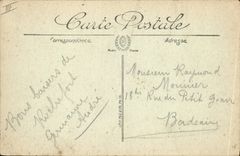 III
Carte Postale
Correspondance
Adresse
Bons baisers de
Rochefort
Germaine
André
Monsieur Raymond
Monnier
18 bis Rue du Petit
Bordeaux